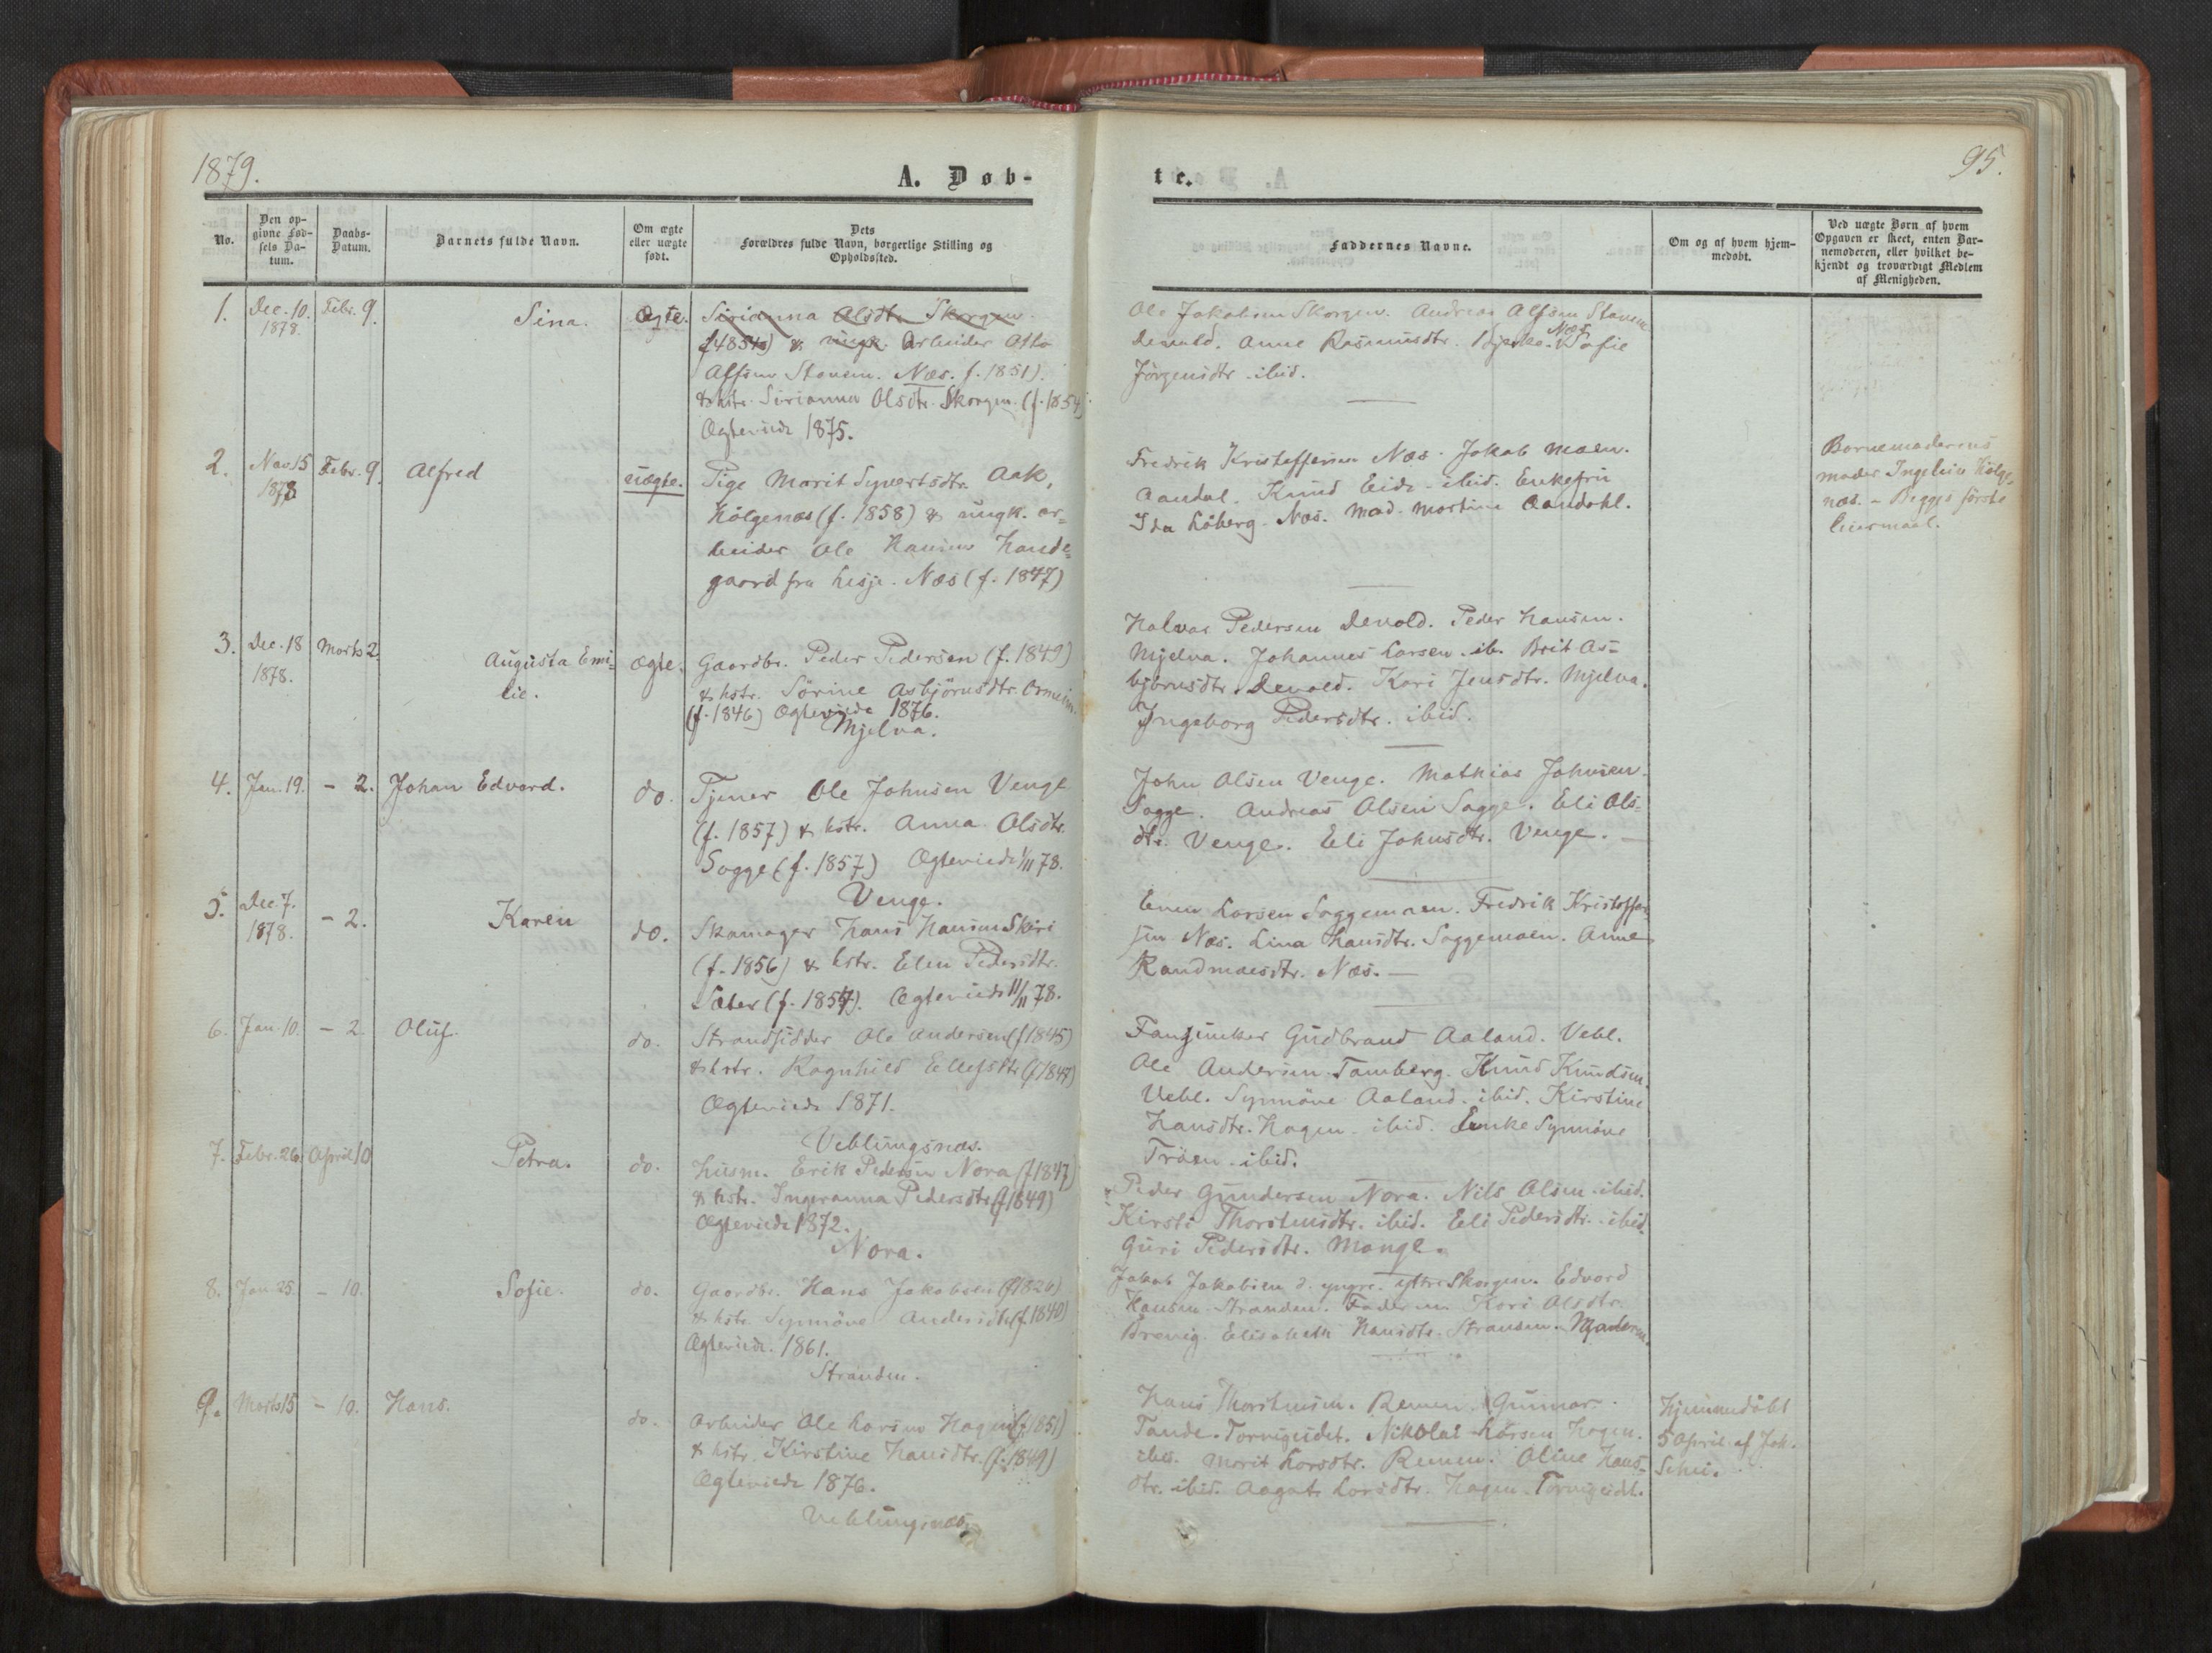 1879.
A. Døb-
No.
Den op-
givne Fød-
sels Da-
tum.
Daabs-
Datum.
Barnets fulde Navn.
Om ægte
eller uægte
født.
Dets
Forældres fulde Navn, borgerlige Stilling og
Opholdssted.
1. Dec. 10. 1878. Febr. 9. Sina. Ægte.
Sirianna Olsdtr. Skorgen.
(f. 1854) & ungk. Arbeider Otto
Alfsen Stavem. Næs. f. 1851).
& hstr. Sirianna Olsdtr. Skorgen. (f. 1854)
Ægteviede 1875.
2. Nov. 15 1878 Febr. 9. Alfred uægte.
Pige Marit Syvertsdtr. Aak,
Holgenæs (f. 1858) & ungk. ar=
beider Ole Hansen Hande=
gaard fra Lesje. Næs (f. 1847)
3. Dec. 18 1878. Marts 2. Augusta Emi=
lie. ægte.
Gaardbr. Peder Pedersen (f. 1849)
& hstr. Sørine Asbjørnsdtr. Ormeim.
(f. 1846) Ægteviede 1876.
Mjelva.
4. Jan. 19. - 2. Johan Edvard. do.
Tjener Ole Johnsen Venge
(f. 1857) & hstr. Anna Olsdtr.
Sogge (f. 1857) Ægteviede 1/11 78.
Venge.
5. Dec. 7. 1878. - 2. Karen do.
Skomager Hans Hansen Skiri
(f. 1856) & hstr. Elen Pedersdtr.
Sæter (f. 1857). Ægteviede 11/11 78.
6. Jan. 10. - 2. Oluf. do.
Strandsidder Ole Andersen (f 1845)
& hstr. Ragnhild Ellefsdtr (f 1847)
Ægteviede 1871.
Veblungsnæs.
7. Febr. 26. April 10 Petra. do.
Husm. Erik Pedersen Nora (f 1847)
& hstr. Ingeranna Pedersdtr (f 1849)
Ægteviede 1872.
Nora.
8. Jan. 25. - 10. Sofie. do.
Gaardbr. Hans Jakobsen (f 1826)
& hstr. Synnöve Andersdtr (f 1840)
Ægteviede. 1861.
Stranden.
9. Marts 15 - 10. Hans. do.
Arbeider Ole Larsen Hagen (f 1851)
& hstr. Kirstine Hansdtr. (f. 1849)
Ægteviede 1876.
Veblungsnæs.
te.
95.
Faddernes Navne.
Om og af hvem hjem-
medøbt.
Ved uægte Børn af hvem
Opgaven er skeet, enten Bar-
nemoderen, eller hvilket be-
kjendt og troværdigt Medlem
af Menigheden.
Ole Jakobsen Skorgen. Andreas Alfsen Stavem
Devold. Anne Rasmusdtr. Næs. Sofie
Jörgensdtr. ibid.
Fredrik Kristoffersen Næs. Jakob Moen.
Aandal. Knud Eide ibid. Enkefru
Ida Löberg. Næs. Mad. Martine Aandahl.
Barnemoderens
moder Ingeleiv Holge-
næs. - Begges første
leiermaal.
Halvar Pedersen Devold. Peder Hansen.
Mjelva. Johannes Larsen. ib. Brit As=
björnsdtr. Devold. Kari Jensdtr. Mjelva.
Ingeborg Pedersdtr. ibid.
John Olsen Venge. Mathias Johnsen.
Sogge. Andreas Olsen Sogge. Eli Ols=
dtr. Venge. Eli Johnsdtr. Venge.
Even Larsen Soggemoen. Fredrik Kristoffer
sen Næs. Lina Hansdtr. Soggemoen. Anne
Randmoesdtr. Næs.
Fanejunker Gudbrand Aaland. Vebl.
Ole Andersen Tomberg. Knud Knudsen.
Vebl. Synnöve Aaland. ibid. Kirstine
Hansdtr. Hagen. ibid. Enke Synnöve
Tröen. ibid.
Peder Gundersen Nora. Nils Olsen ibid.
Kirsti Thorstensdtr. ibid. Eli Pedersdtr. ibid.
Guri Pedersdtr. Monge.
Jakob Jakobsen d. yngre. ytre Skorgen. Edvard
Hansen Stranden. Faderen. Kari Olsdtr.
Brevig. Elisabeth Hansdtr. Stranden. Moderen.
Hans Thorstensen. Remem. Gunnar
Tande. Torvigeidet. Nikolai Larsen Hagen.
ibid. Marit Larsdtr. Remem. Oline Hans=
dtr. ibid. Aagot Larsdtr. Hagen. Torvigeidet.
Hjemmedöbt
5 April af Joh.